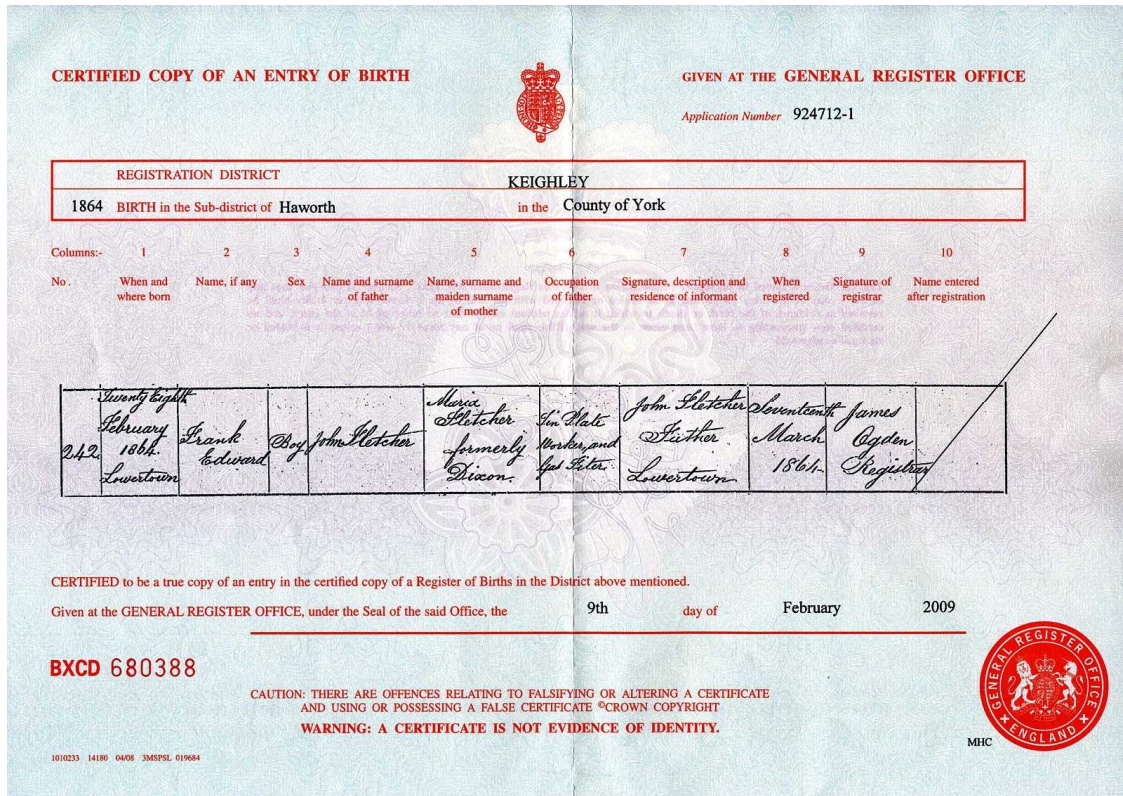 CERTIFIED COPY OF AN ENTRY OF BIRTH
GIVEN AT THE GENERAL REGISTER OFFICE
Application Number 924712-1
REGISTRATION DISTRICT KEIGHLEY
1864 BIRTH in the Sub-district of Haworth in the County of York
Columns:- 1 2 3 4 5 6 7 8 9 10
No. When and where born Name, if any Sex Name and surname of father Name, surname and maiden surname of mother Occupation of father Signature, description and residence of informant When registered Signature of registrar Name entered after registration
242
Twenty Eighth
February
1864
Lowertown
Frank
Edward
Boy
John Fletcher
Maria
Fletcher
formerly
Dixon.
Tin Plate
Worker, and
Gas Fiter.
John Fletcher
Father
Lowertown
Seventeenth
March
1864
James
Ogden
Registrar
CERTIFIED to be a true copy of an entry in the certified copy of a Register of Births in the District above mentioned.
Given at the GENERAL REGISTER OFFICE, under the Seal of the said Office, the 9th day of February 2009
BXCD 680388
CAUTION: THERE ARE OFFENCES RELATING TO FALSIFYING OR ALTERING A CERTIFICATE
AND USING OR POSSESSING A FALSE CERTIFICATE ©CROWN COPYRIGHT
WARNING: A CERTIFICATE IS NOT EVIDENCE OF IDENTITY.
GENERAL REGISTER OFFICE
ENGLAND
MHC
1010233 14180 04/08 3MSPSL 019684